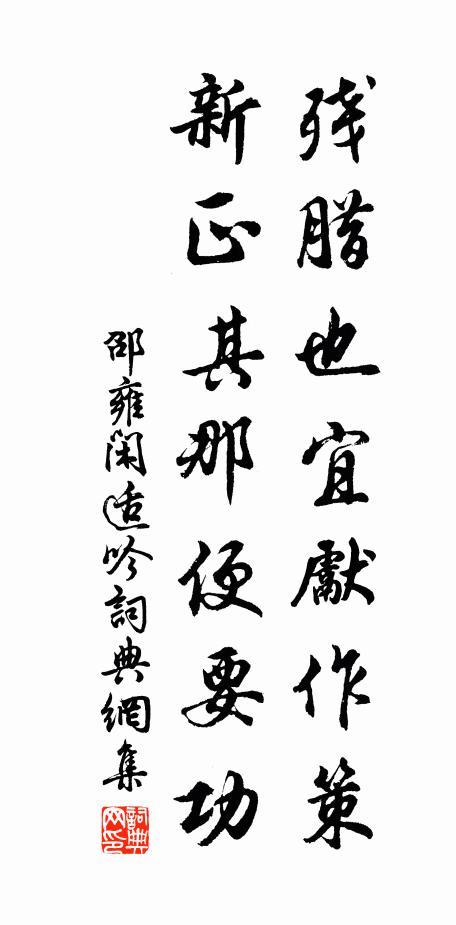 残腊也宜獻作策
新正其那便要功
邵雍閑适吟詞典網集
詞典网印